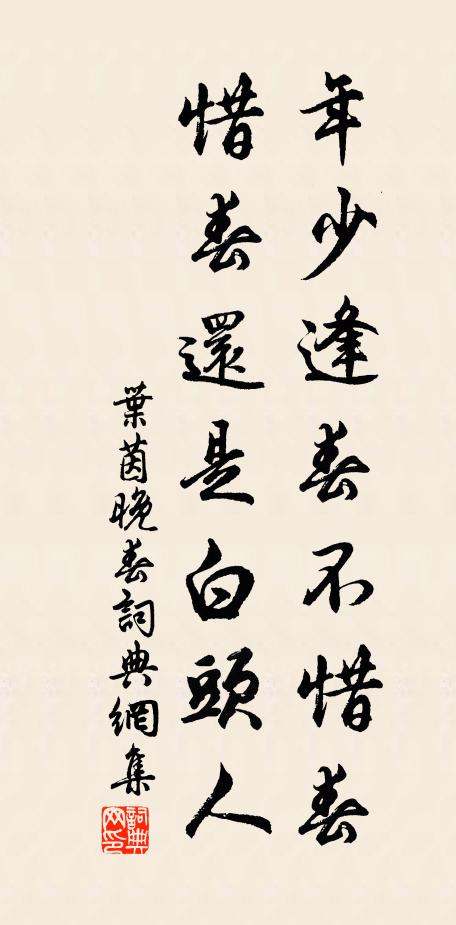 年少逢春不惜春
惜春還是白頭人
葉茵晚春詞典網集
詞典網印